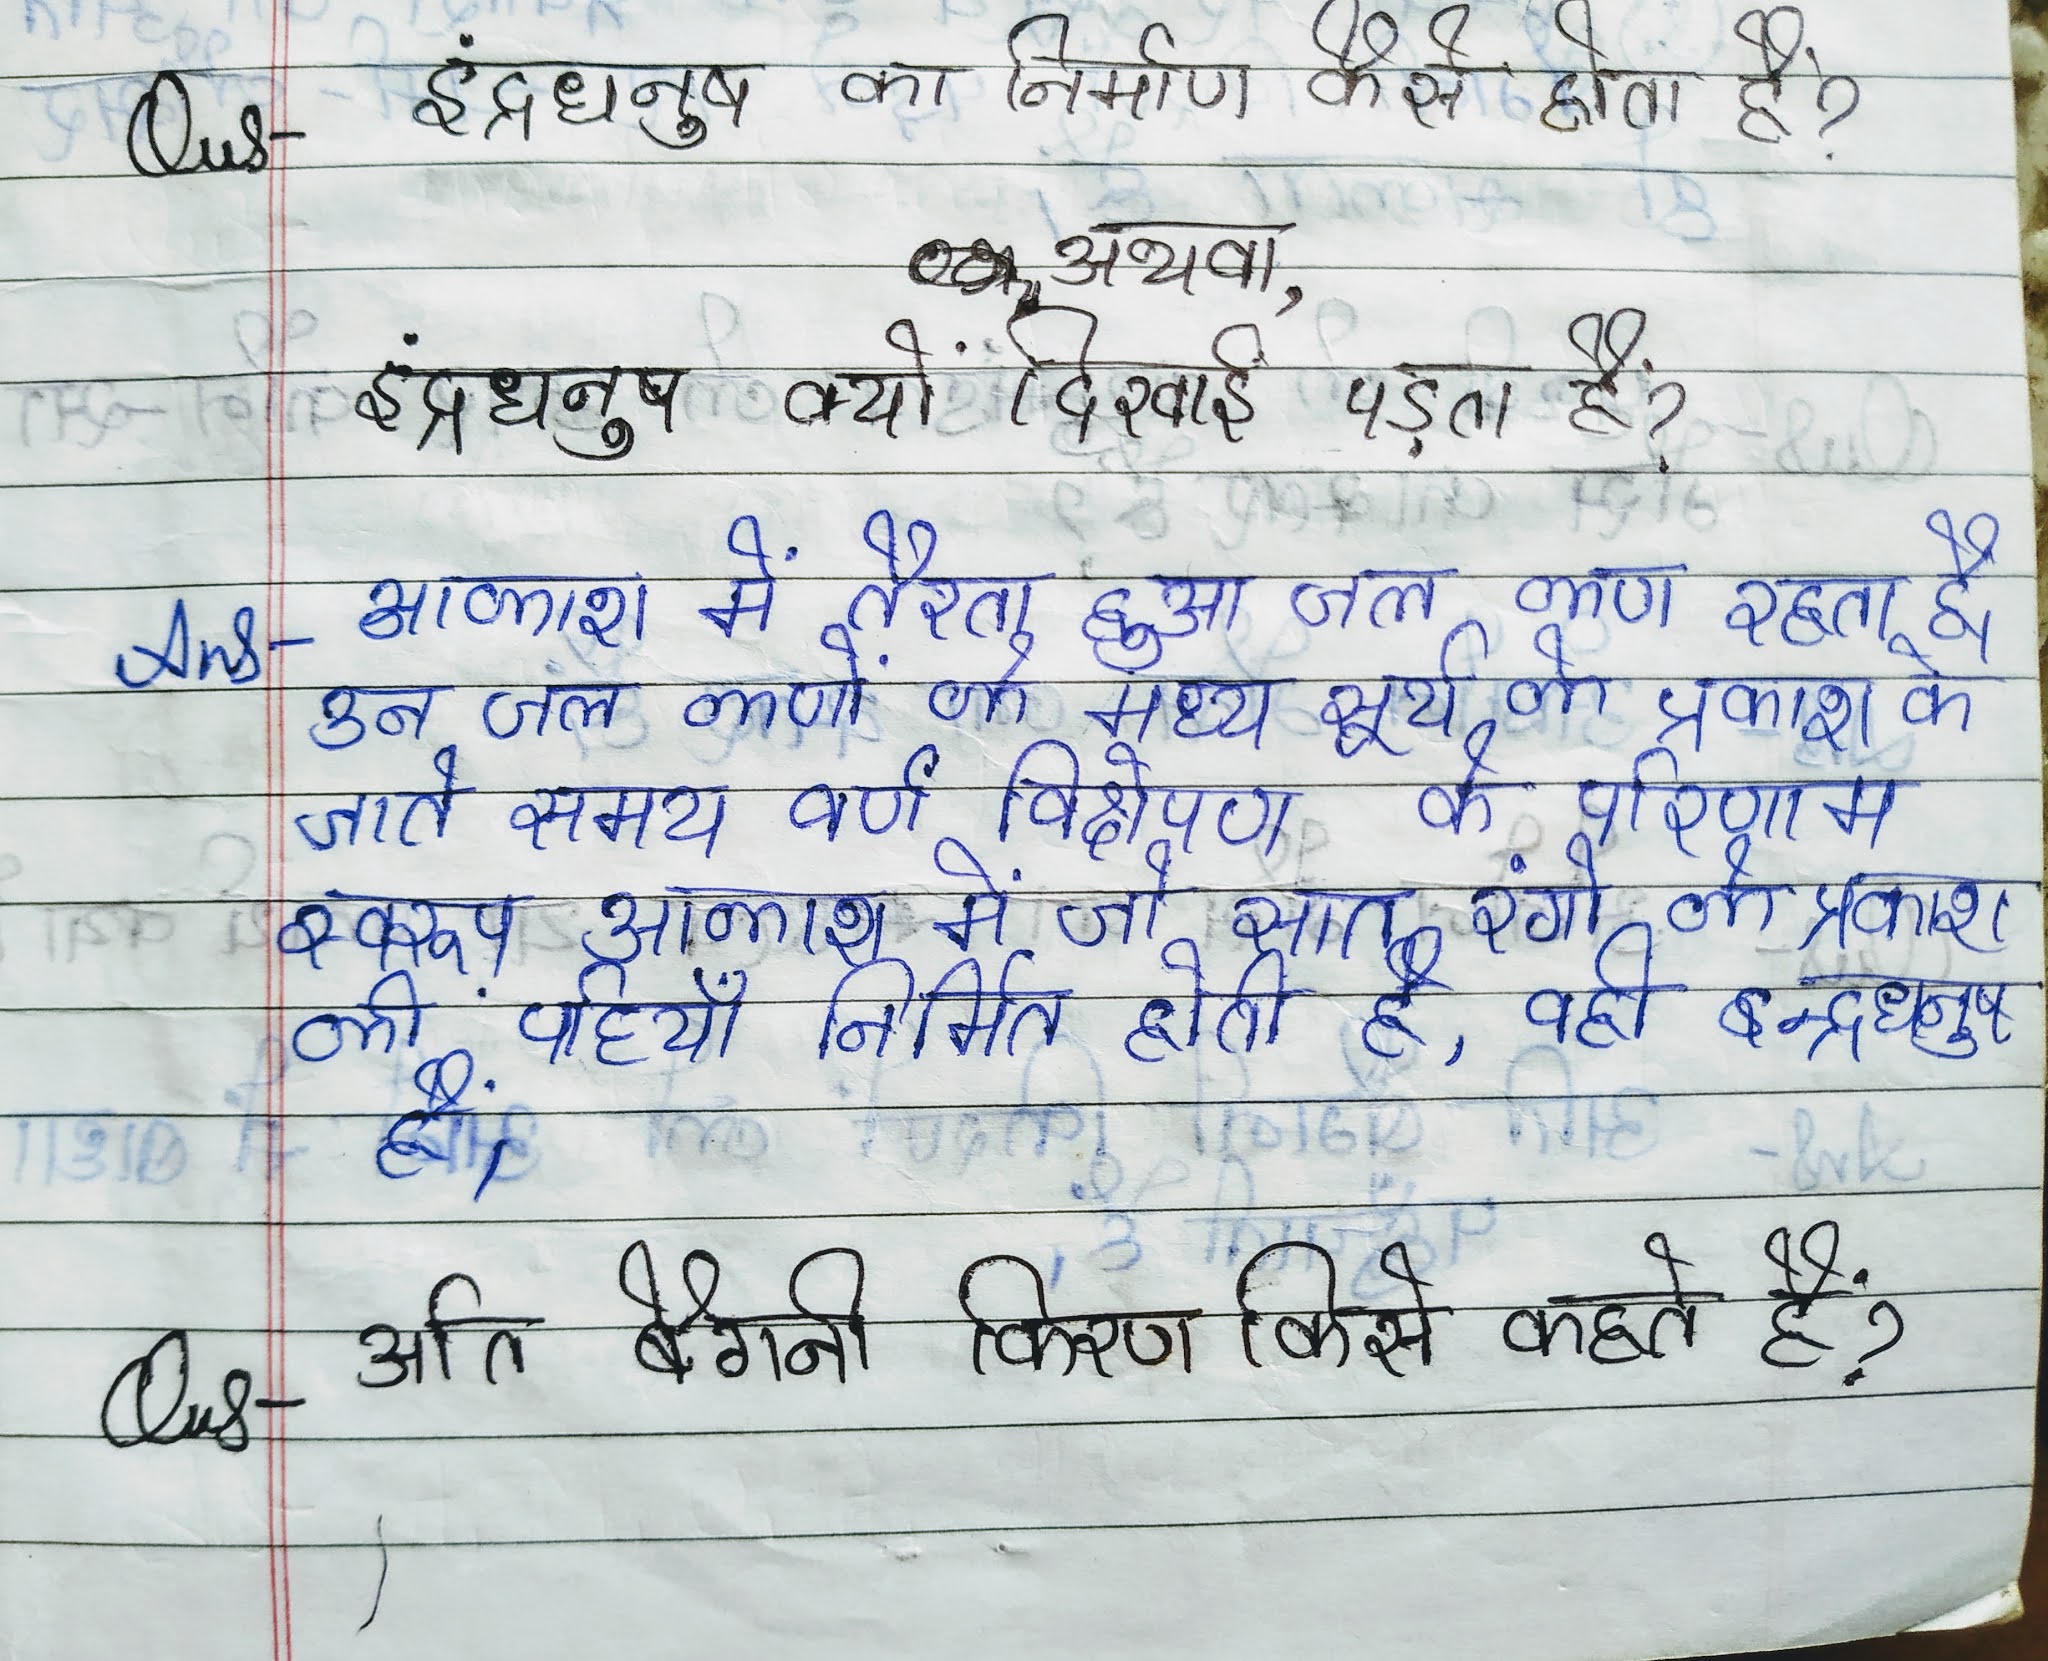 Qus- इंद्रधनुष का निर्माण कैसे होता हैं?
अथवा,
इंद्रधनुष क्यों दिखाई पड़ता हैं?
Ans- आकाश में तैरता हुआ जल कण रहता है।
उन जल कणों के मध्य सूर्य के प्रकाश के
जाते समय वर्ण विक्षेपण के परिणाम
स्वरूप आकाश में जो सात रंगो के प्रकाश
की पट्टियाँ निर्मित होती है, वही इन्द्रधनुष
हैं।
Qus- अति बैगनी किरण किसे कहते हैं?